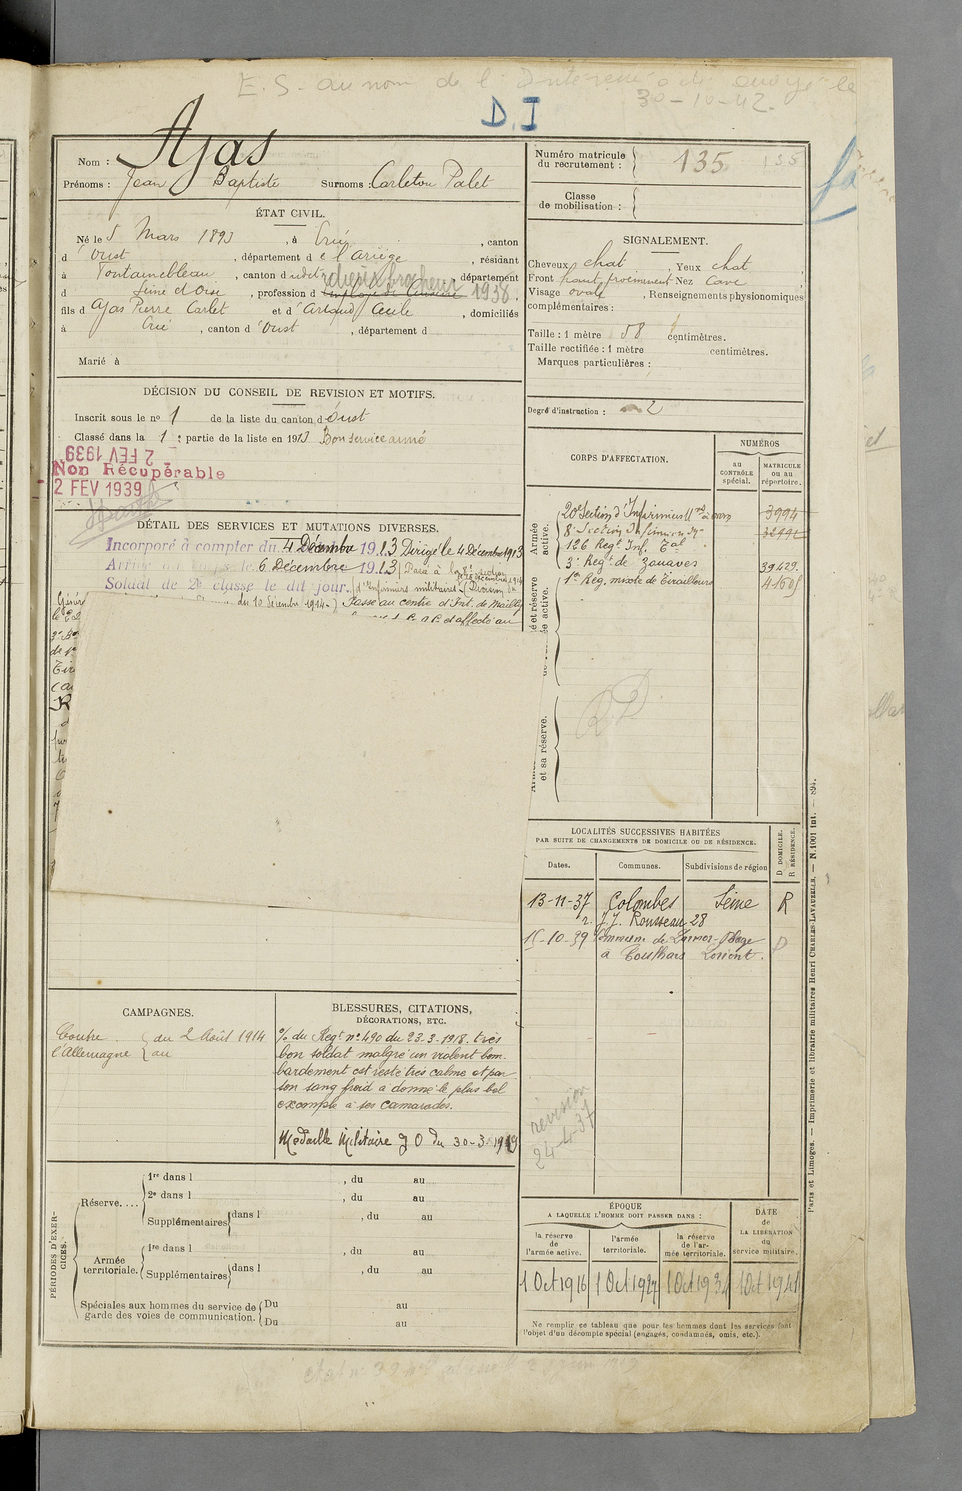 E. S. au nom de l'
30-10-42.
D. I
Nom : Ajas
Prénoms : Jean Baptiste Surnoms : Carleton Palet
ÉTAT CIVIL.
Né le 5 Mars 1893, à Crué, canton
d'Oust, département de l'Ariège, résidant
à Fontainebleau, canton dudit, département
d Seine et Oise, profession d 1938,
fils d'Ajas Pierre Carlet et d'Artaud Cécile, domiciliés
à Crué, canton d'Oust, département d
Marié à
DÉCISION DU CONSEIL DE REVISION ET MOTIFS.
Inscrit sous le no 1 de la liste du canton d'Oust
Classé dans la 1 e partie de la liste en 1913 Bon service armé
2 FEV 1939
Non Récupérable
2 FEV 1939
DÉTAIL DES SERVICES ET MUTATIONS DIVERSES.
Incorporé à compter du 4 Décembre 1913 Dirigé le 4 Décembre 1913
Arrivé au corps le 6 Décembre 1913 Passé à la 8e section
Soldat de 2e classe le dit jour. d'Infirmiers militaires (Division
du 10 Décembre 1914.) Passé au centre d'Inst. de Mailly
et affecté au
Numéro matricule
du recrutement : 135 135
Classe
de mobilisation :
SIGNALEMENT.
Cheveux chat, Yeux chat
Front haut proéminent Nez Cave
Visage ovale, Renseignements physionomiques
complémentaires :
Taille : 1 mètre 58 centimètres.
Taille rectifiée : 1 mètre centimètres.
Marques particulières :
Degré d'instruction : 2
CORPS D'AFFECTATION.
NUMÉROS
au
CONTRÔLE
spécial.
MATRICULE
ou au
répertoire.
Armée
active.
20e Section d'Infirmiers 3994
8e Section Infirmiers Mres
126 Regt. Inf. Cal
3e Regt. de Zouaves 39429.
1er Reg. mixte de Tirailleurs
et sa réserve.
LOCALITÉS SUCCESSIVES HABITÉES
PAR SUITE DE CHANGEMENTS DE DOMICILE OU DE RÉSIDENCE.
D DOMICILE.
R RÉSIDENCE.
Dates.
Communes.
Subdivisions de région
13-11-37 Colombes Seine R
r. J.J. Rousseau 28
15-10-39 Commune de Larmor-Plage D
à Toulhars Lorient.
révision
24-4-37
CAMPAGNES.
Contre l'Allemagne du 2 Août 1914
au
BLESSURES, CITATIONS,
DÉCORATIONS, ETC.
O/ du Regt no 490 du 23.3.1918. très
bon soldat malgré un violent bom-
bardement est resté très calme et par
son sang froid a donné le plus bel
exemple à ses camarades.
Médaille Militaire J O du 30-3-1919
PÉRIODES D'EXER-
CICES.
Réserve....
1re dans l , du au
2e dans l , du au
Supplémentaires dans l , du au
Armée
territoriale.
1re dans l , du au
Supplémentaires dans l , du au
Spéciales aux hommes du service de
garde des voies de communication.
Du au
Du au
ÉPOQUE
A LAQUELLE L'HOMME DOIT PASSER DANS :
la réserve
de
l'armée active.
l'armée
territoriale.
la réserve
de l'ar-
mée territoriale.
DATE
de
LA LIBÉRATION
du
service militaire.
1 Oct 1916 1 Oct 1927 1 Oct 1934 1 Oct 1941
Ne remplir ce tableau que pour les hommes dont les services font
l'objet d'un décompte spécial (engagés, condamnés, omis, etc.).
Paris et Limoges. — Imprimerie et librairie militaires Henri CHARLES-LAVAUZELLE. — N. 1001 int. — 894.